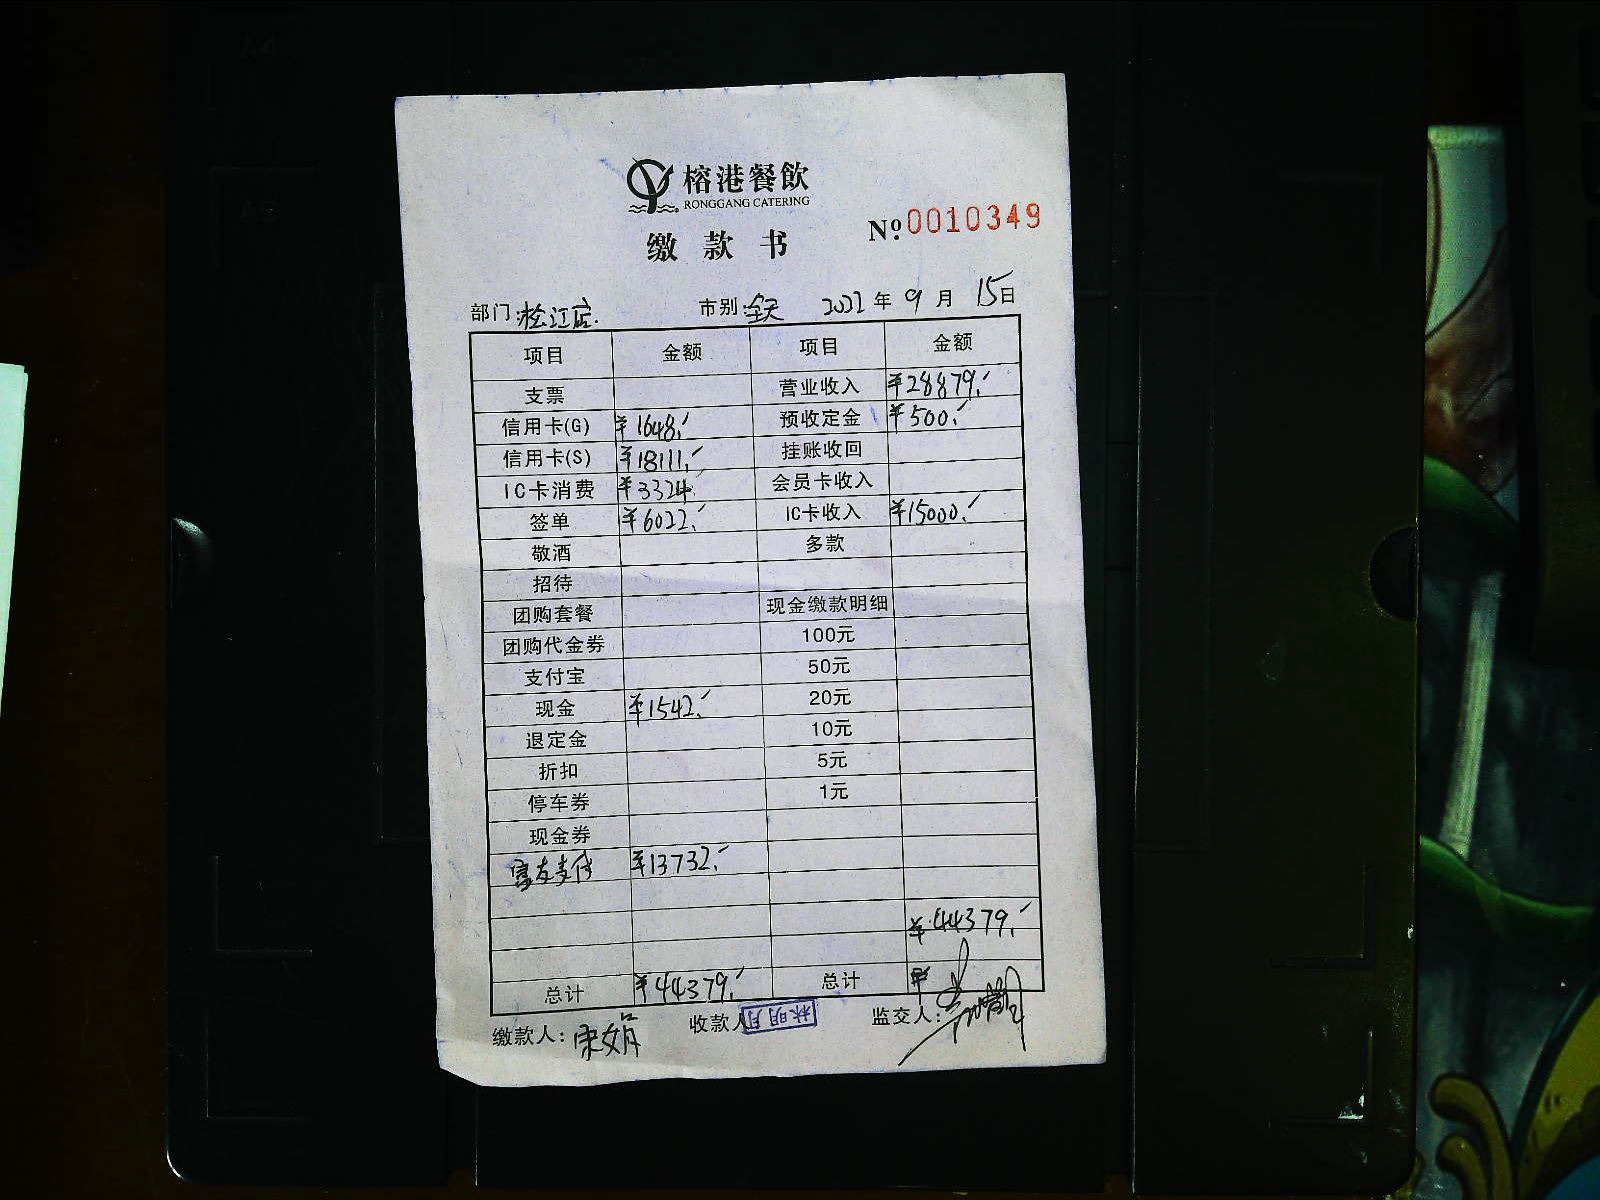 A4
A5
榕港餐飲
RONGGANG CATERING
缴款书
№0010349
部门:松江店. 市别:全天 2022年9月15日
项目 金额 项目 金额
支票 营业收入 ¥28879.
信用卡(G) ¥1648. 预收定金 ¥500.
信用卡(S) ¥18111. 挂账收回
IC卡消费 ¥3324. 会员卡收入
签单 ¥6022. IC卡收入 ¥15000.
敬酒 多款
招待
团购套餐 现金缴款明细
团购代金券 100元
支付宝 50元
现金 ¥1542. 20元
退定金 10元
折扣 5元
停车券 1元
现金券
¥13732.
¥44379.
总计 ¥44379. 总计 ¥
缴款人: 收款人 林明月 监交人: